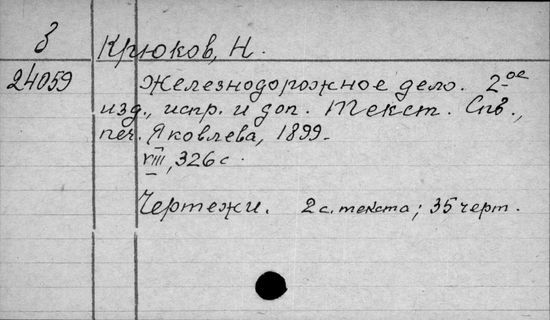 З
Крюков, Н.
24059
Железнодорожное дело. 2-ое
изд., испр. и доп. Текст. Спб.,
печ. Яковлева, 1899.
VIII, 326 с.
Чертежи. 2 с. текста; 35 черт.